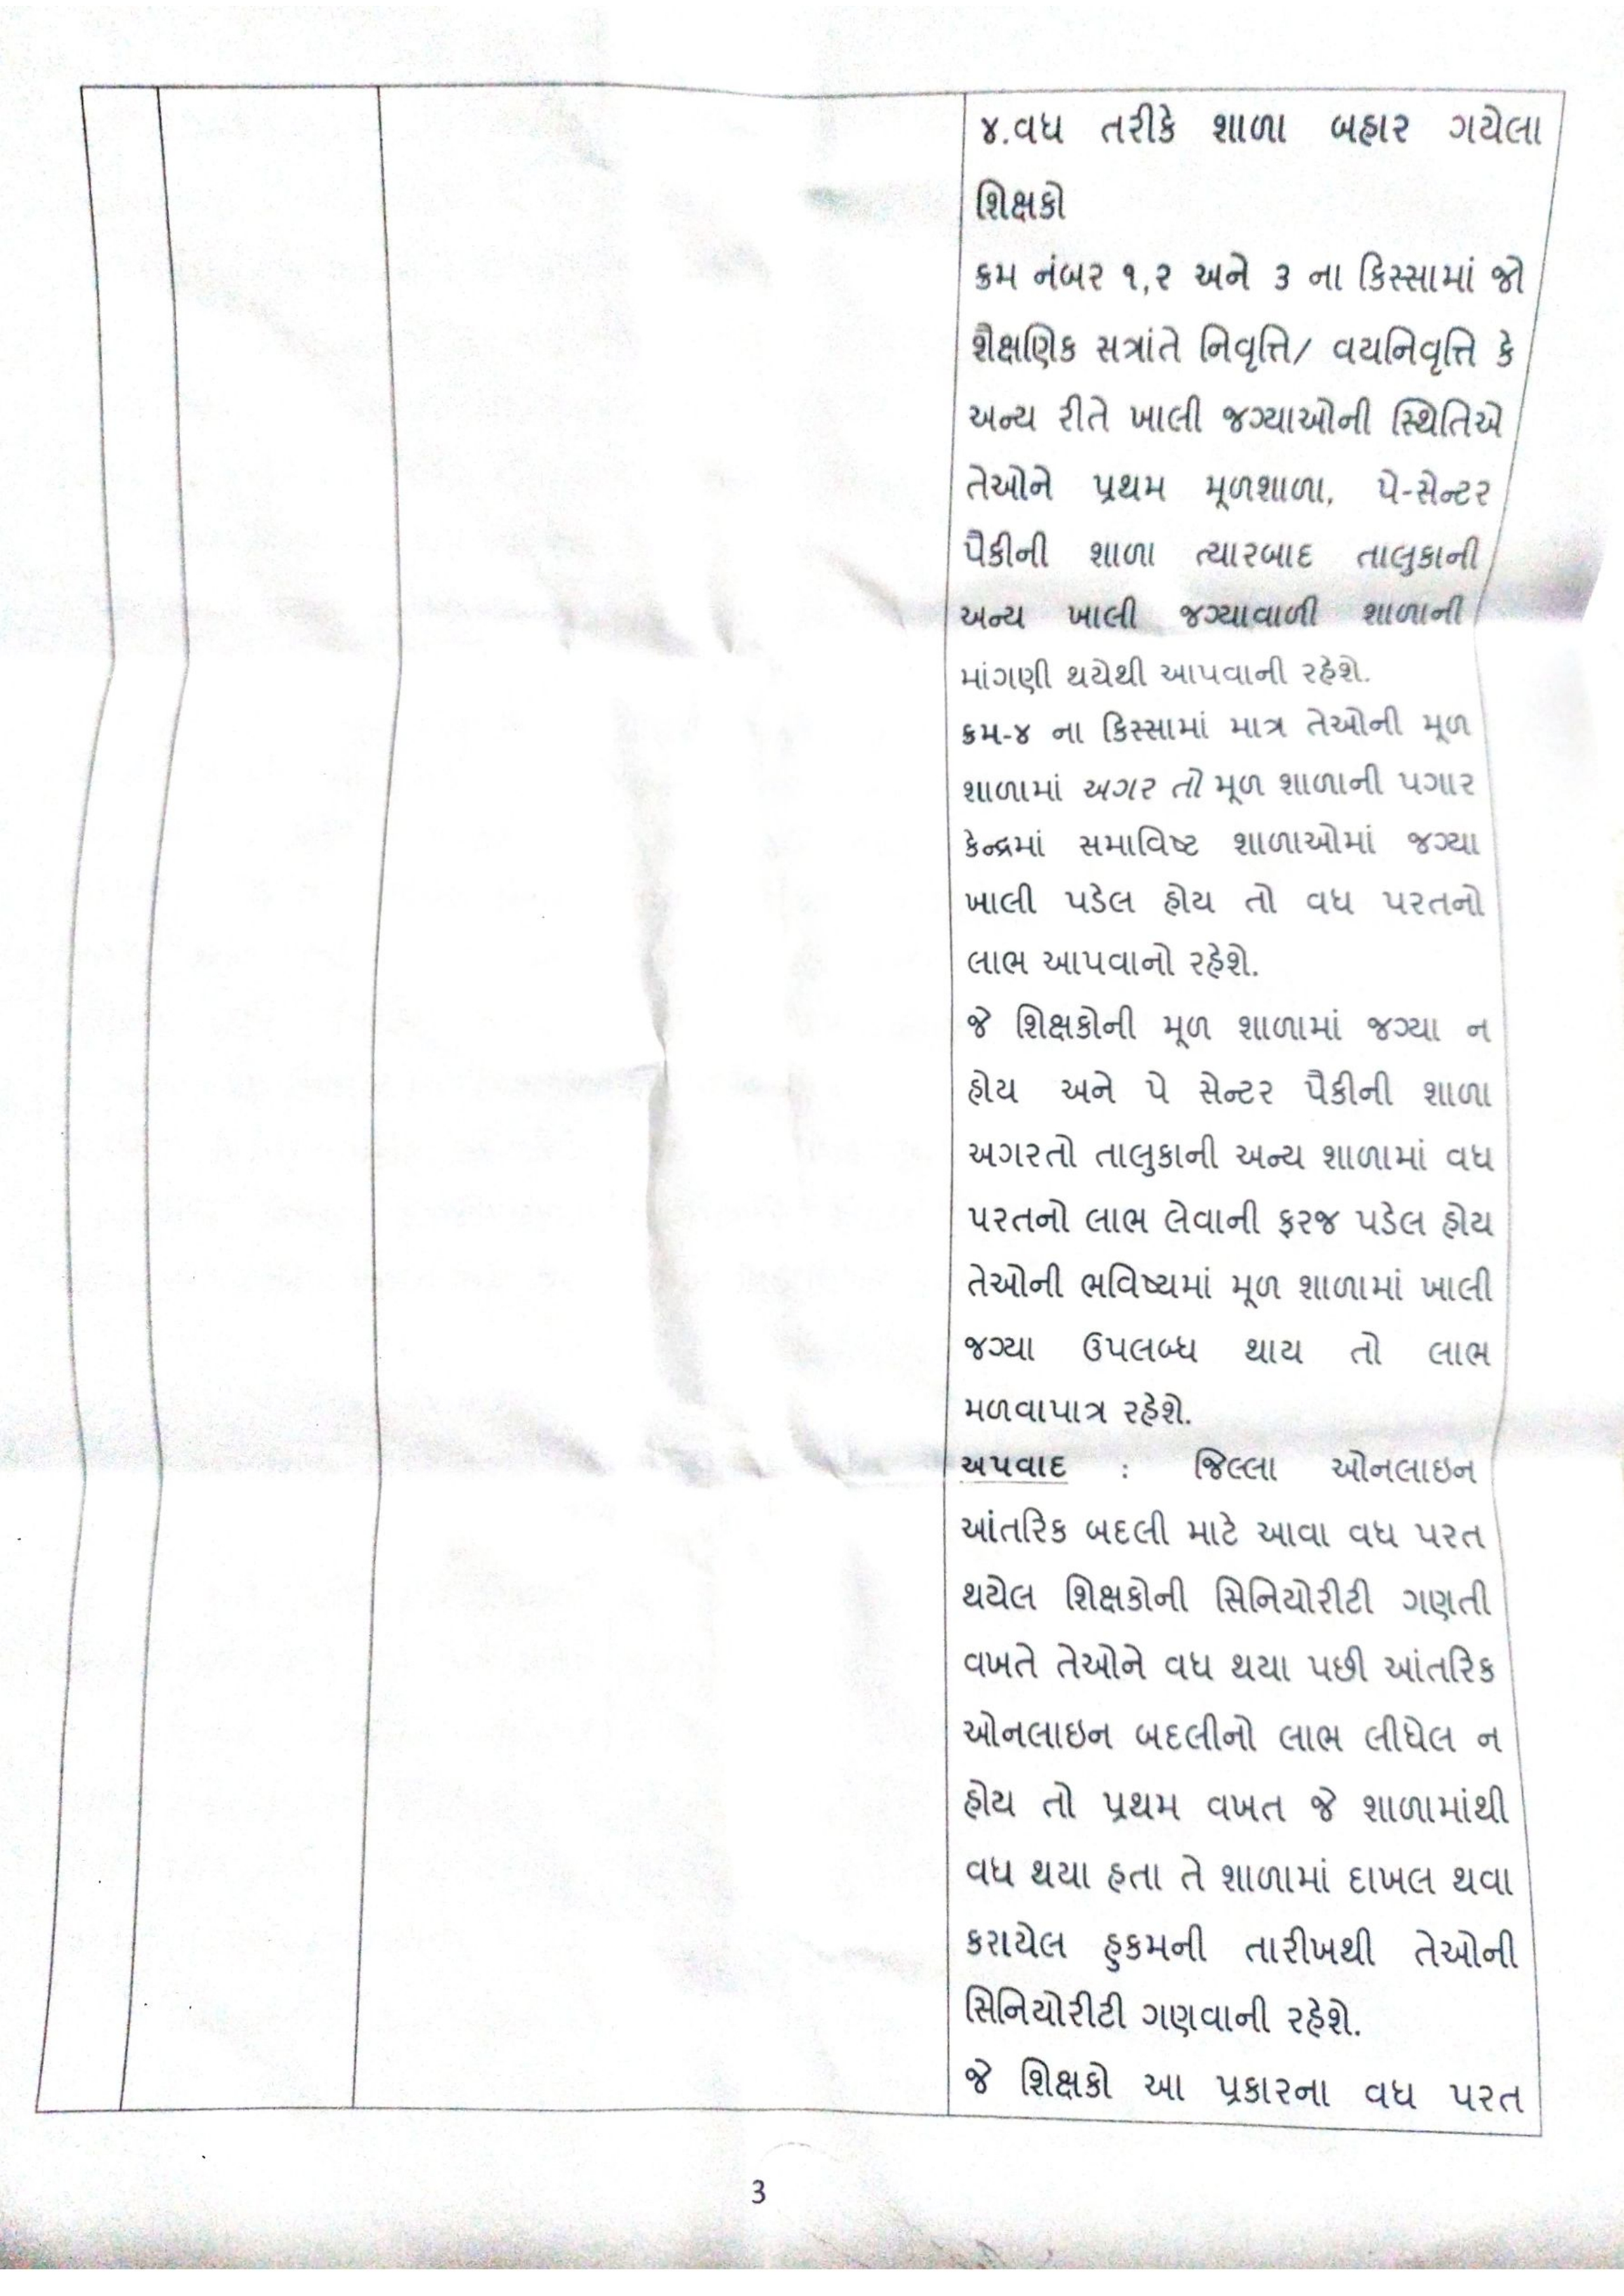 ૪.વધ તરીકે શાળા બહાર ગયેલા
શિક્ષકો
ક્રમ નંબર ૧,૨ અને ૩ ના કિસ્સામાં જો
શૈક્ષણિક સત્રાંતે નિવૃત્તિ/ વયનિવૃત્તિ કે
અન્ય રીતે ખાલી જગ્યાઓની સ્થિતિએ
તેઓને પ્રથમ મૂળશાળા, પે-સેન્ટર
પૈકીની શાળા ત્યારબાદ તાલુકાની
અન્ય ખાલી જગ્યાવાળી શાળાની
માંગણી થયેથી આપવાની રહેશે.
ક્રમ-૪ ના કિસ્સામાં માત્ર તેઓની મૂળ
શાળામાં અગર તો મૂળ શાળાની પગાર
કેન્દ્રમાં સમાવિષ્ટ શાળાઓમાં જગ્યા
ખાલી પડેલ હોય તો વધ પરતનો
લાભ આપવાનો રહેશે.
જે શિક્ષકોની મૂળ શાળામાં જગ્યા ન
હોય અને પે સેન્ટર પૈકીની શાળા
અગરતો તાલુકાની અન્ય શાળામાં વધ
પરતનો લાભ લેવાની ફરજ પડેલ હોય
તેઓની ભવિષ્યમાં મૂળ શાળામાં ખાલી
જગ્યા ઉપલબ્ધ થાય તો લાભ
મળવાપાત્ર રહેશે.
અપવાદ : જિલ્લા ઓનલાઇન
આંતરિક બદલી માટે આવા વધ પરત
થયેલ શિક્ષકોની સિનિયોરીટી ગણતી
વખતે તેઓને વધ થયા પછી આંતરિક
ઓનલાઇન બદલીનો લાભ લીધેલ ન
હોય તો પ્રથમ વખત જે શાળામાંથી
વધ થયા હતા તે શાળામાં દાખલ થવા
કરાયેલ હુકમની તારીખથી તેઓની
સિનિયોરીટી ગણવાની રહેશે.
જે શિક્ષકો આ પ્રકારના વધ પરત
3